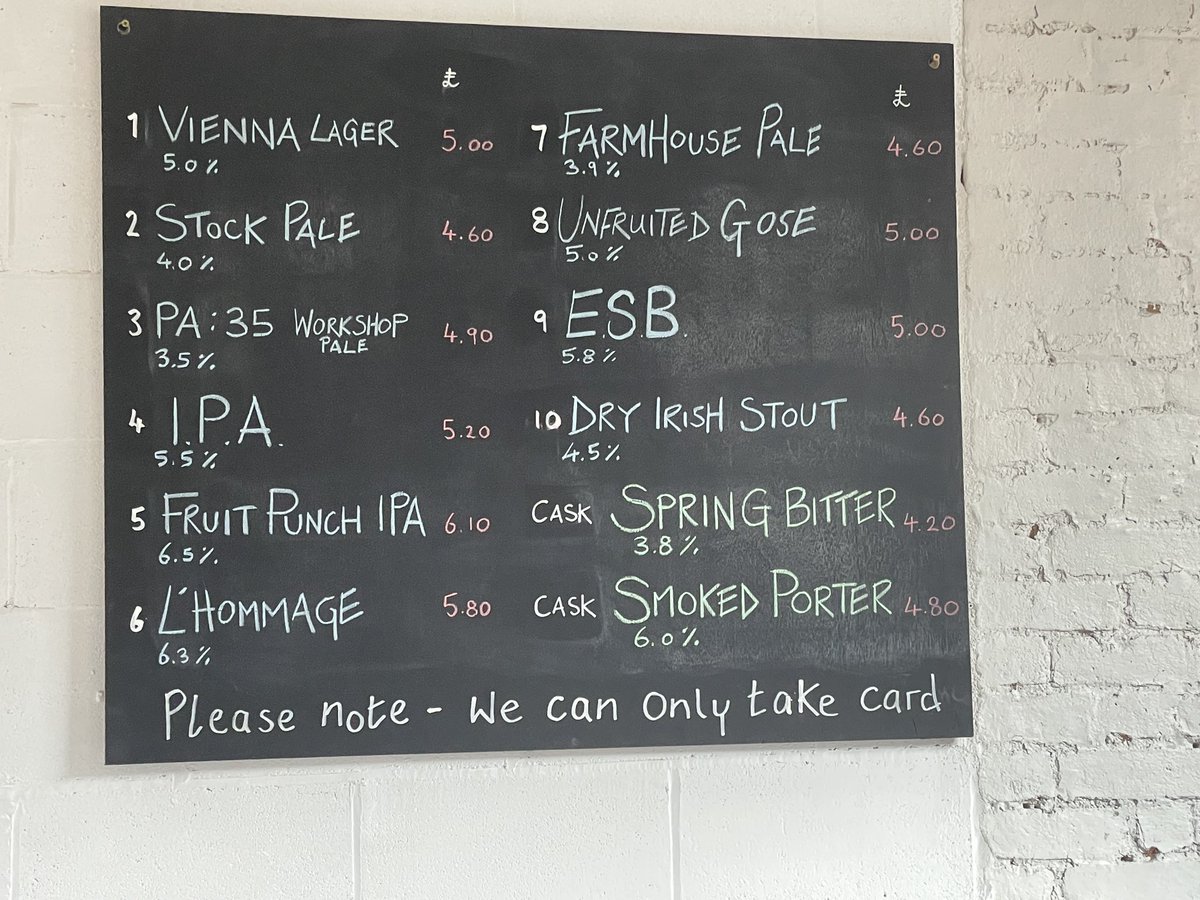 £
1 VIENNA LAGER 5.00
5.0%
2 STOCK PALE 4.60
4.0%
3 PA:35 WORKSHOP PALE 4.90
3.5%
4 I.P.A. 5.20
5.5%
5 FRUIT PUNCH IPA 6.10
6.5%
6 L'HOMMAGE 5.80
6.3%
£
7 FARMHOUSE PALE 4.60
3.9%
8 UNFRUITED GOSE 5.00
5.0%
9 E.S.B. 5.00
5.8%
10 DRY IRISH STOUT 4.60
4.5%
CASK SPRING BITTER 4.20
3.8%
CASK SMOKED PORTER 4.80
6.0%
Please note - We can only take card